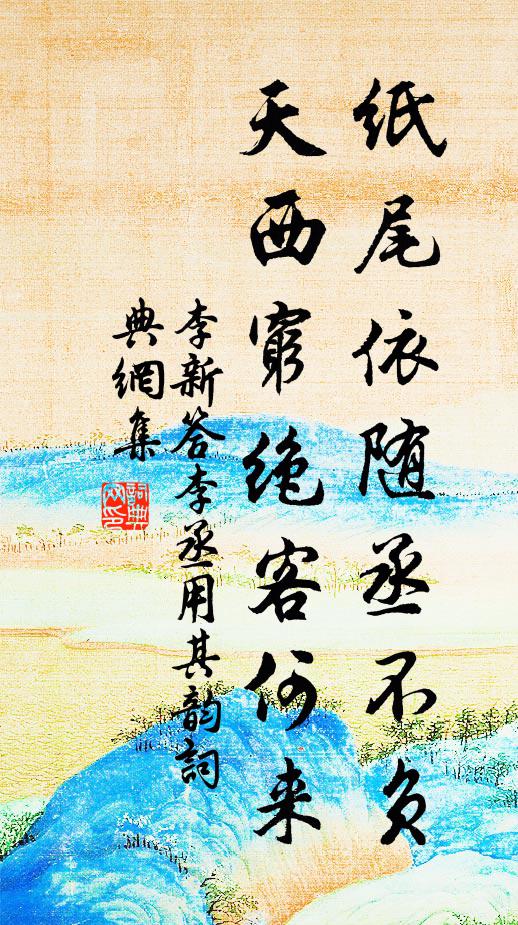 纸尾依随丞不负
天西窮绝客何来
李新答李丞用其韵詞
典網集
詞典
网印